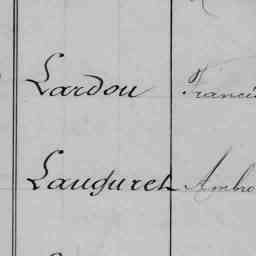 Lardou Franci
Lauguret Ambro